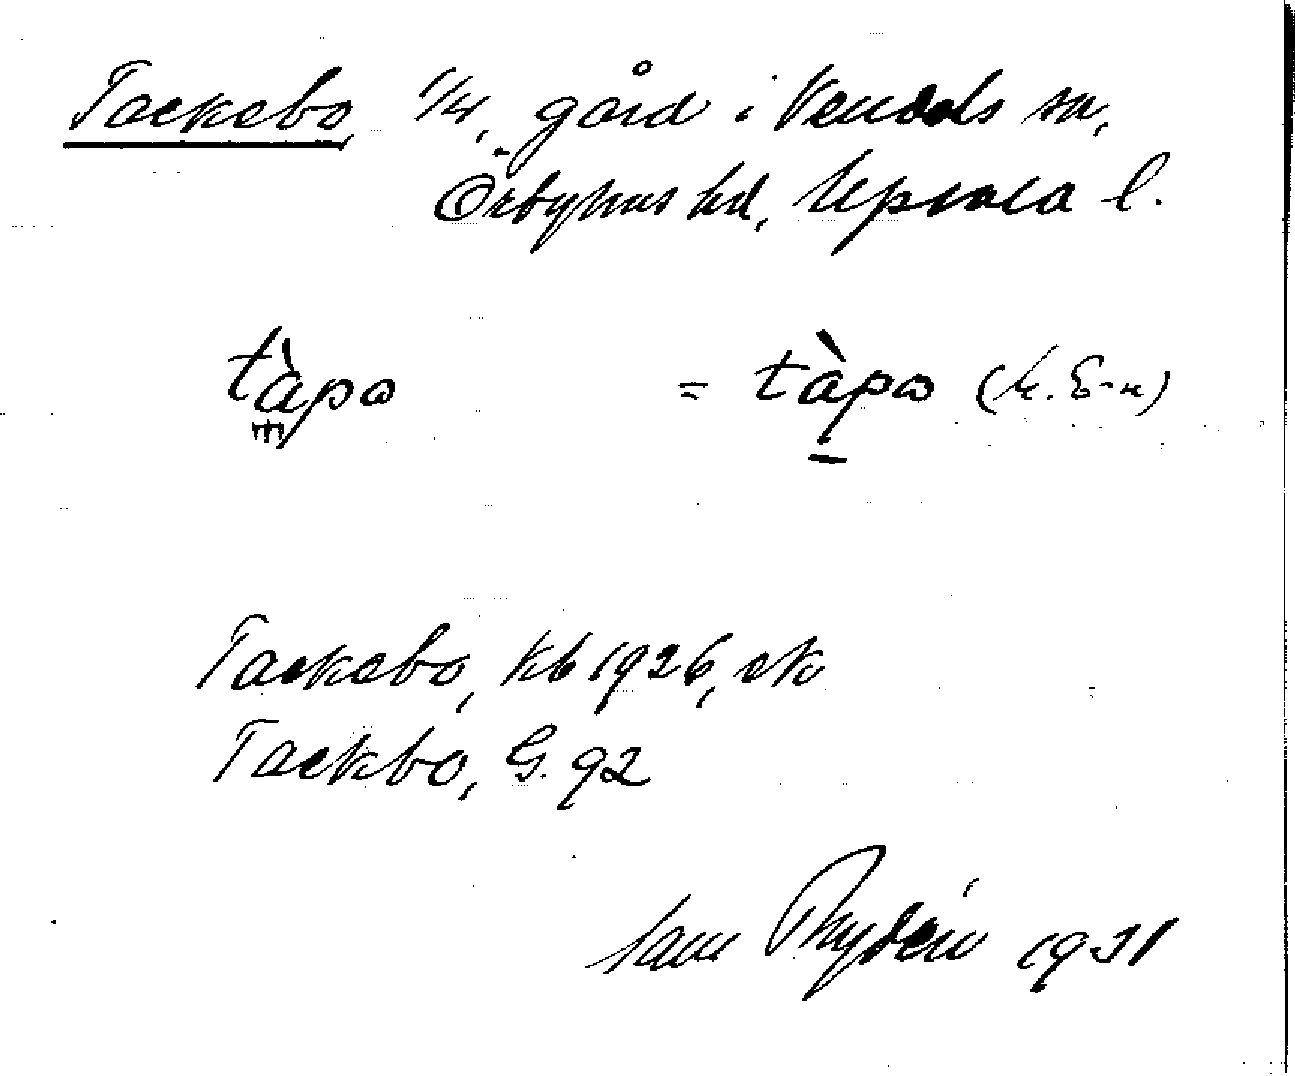 Tackebo, 1/4, gård i Vendels sn,
Örbyhus hd, Upsala l.
tàpo = tàpo
Tackebo, kb 1926, ek
Tackbo, G. 92
Sam Rydén 1931